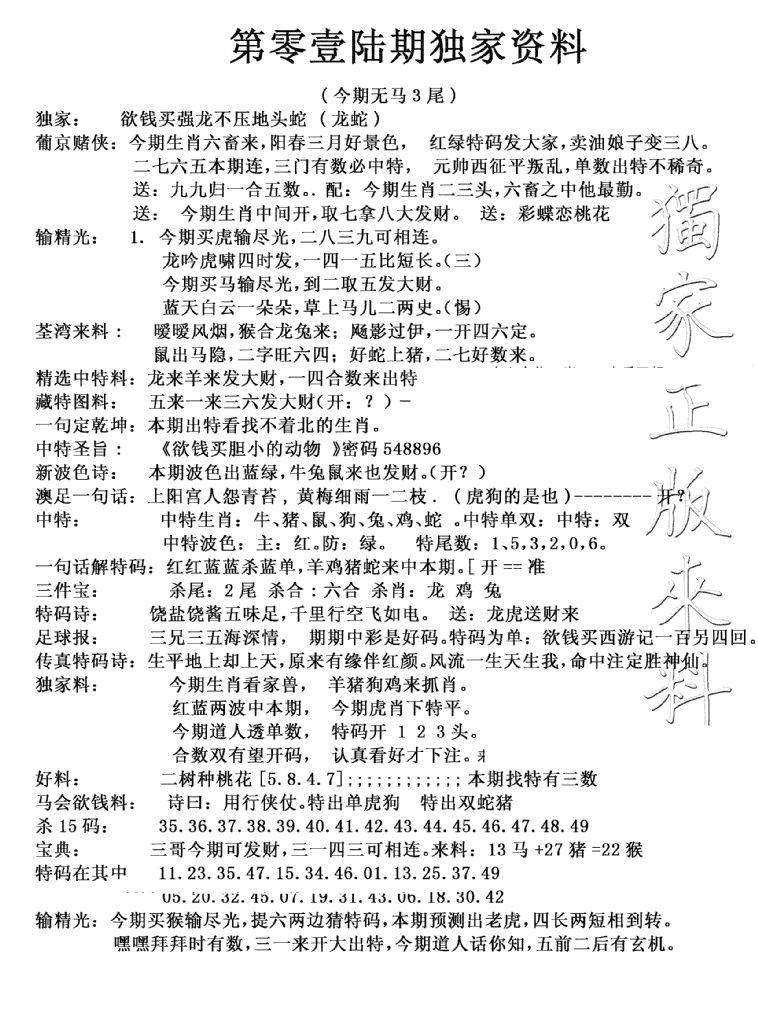 第零壹陆期独家资料
(今期无马3尾)
独家: 欲钱买强龙不压地头蛇 (龙蛇)
葡京赌侠:今期生肖六畜来,阳春三月好景色, 红绿特码发大家,卖油娘子变三八。
二七六五本期连,三门有数必中特, 元帅西征平叛乱,单数出特不稀奇。
送:九九归一合五数。. 配:今期生肖二三头,六畜之中他最勤。
送: 今期生肖中间开,取七拿八大发财。 送:彩蝶恋桃花
输精光: 1. 今期买虎输尽光,二八三九可相连。
龙吟虎啸四时发,一四一五比短长。(三)
今期买马输尽光,到二取五发大财。
蓝天白云一朵朵,草上马儿二两史。(惕)
荃湾来料: 暧暧风烟,猴合龙兔来;飏影过伊,一开四六定。
鼠出马隐,二字旺六四;好蛇上猪,二七好数来。
精选中特料:龙来羊来发大财,一四合数来出特
藏特图料: 五来一来三六发大财(开:?)-
一句定乾坤:本期出特看找不着北的生肖。
中特圣旨: 《欲钱买胆小的动物 》密码548896
新波色诗: 本期波色出蓝绿,牛兔鼠来也发财。(开?)
澳足一句话:上阳宫人怨青苔,黄梅细雨一二枝.(虎狗的是也)--------开?
中特: 中特生肖:牛、猪、鼠、狗、兔、鸡、蛇 。中特单双:中特:双
中特波色:主:红。防:绿。 特尾数:1、5,3,2,0,6。
一句话解特码:红红蓝蓝杀蓝单,羊鸡猪蛇来中本期。[开==准
三件宝: 杀尾:2尾 杀合:六合 杀肖:龙 鸡 兔
特码诗: 饶盐饶酱五味足,千里行空飞如电。 送:龙虎送财来
足球报: 三兄三五海深情, 期期中彩是好码。特码为单:欲钱买西游记一百另四回。
传真特码诗:生平地上却上天,原来有缘伴红颜。风流一生天生我,命中注定胜神仙。
独家料: 今期生肖看家兽, 羊猪狗鸡来抓肖。
红蓝两波中本期, 今期虎肖下特平。
今期道人透单数, 特码开 1 2 3头。
合数双有望开码, 认真看好才下注。
好料: 二树种桃花[5.8.4.7];;;;;;;;;;;;本期找特有三数
马会欲钱料: 诗曰:用行侠仗。特出单虎狗 特出双蛇猪
杀15码: 35.36.37.38.39.40.41.42.43.44.45.46.47.48.49
宝典: 三哥今期可发财,三一四三可相连。来料:13马+27猪=22猴
特码在其中 11.23.35.47.15.34.46.01.13.25.37.49
05.20.32.45.07.19.31.43.06.18.30.42
输精光:今期买猴输尽光,提六两边猜特码,本期预测出老虎,四长两短相到转。
嘿嘿拜拜时有数,三一来开大出特,今期道人话你知,五前二后有玄机。
獨家正版來料